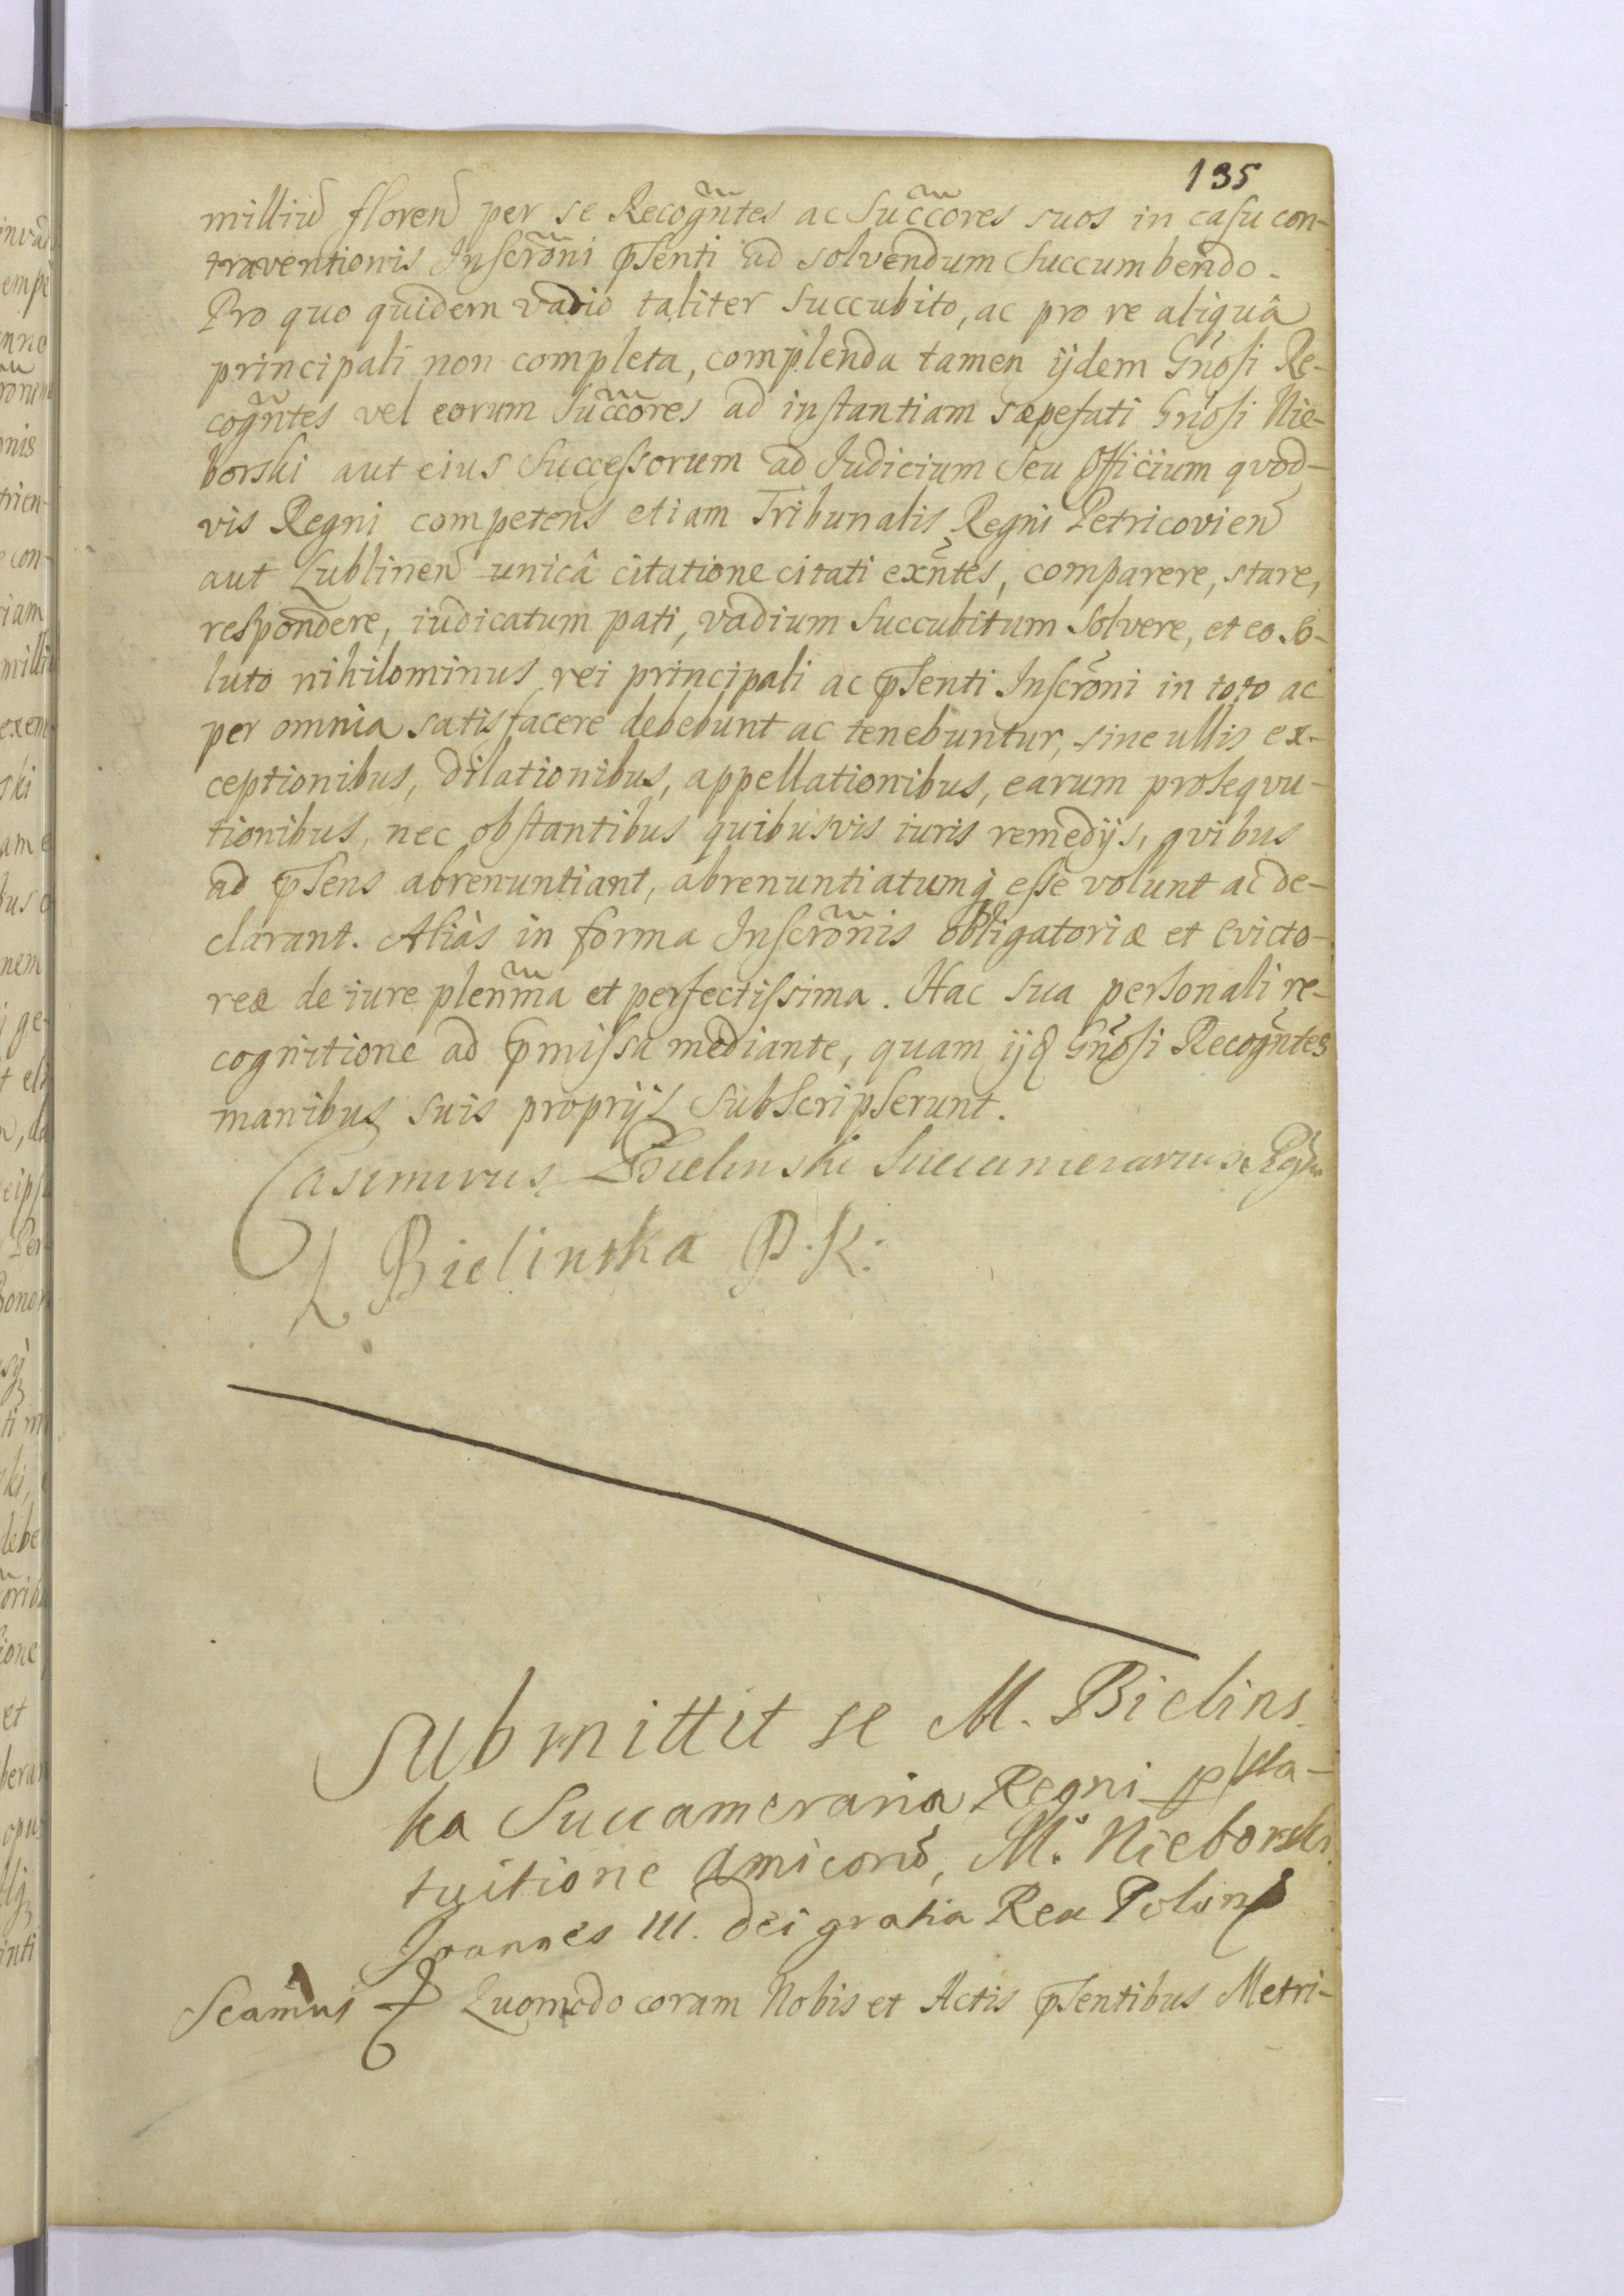 135
milliũ floreñ per se Recogñtes ac Succ̃ores suos in casu con-
traventionis Inscrõni p̃senti ad solvendum succumbendo.
Pro quo quidem vadio taliter succubito, ac pro re aliquâ
principali non completa, complenda tamen ijdem Gñosi Re-
cogñtes vel eorum Succ̃ores ad instantiam sæpefati Gñosi Nie-
borski aut eius Successorum ad Iudicium seu Officium qvod-
vis Regni competens etiam Tribunalis Regni Petricovieñ
aut Lublineñ unicâ citatione citati exñtes, comparere, stare,
respondere, iudicatum pati, vadium succubitum solvere, et eo so-
luto nihilominus rei principali ac p̃senti Inscrõni in toto ac
per omnia satisfacere debebunt ac tenebuntur, sine ullis ex-
ceptionibus, dilationibus, appellationibus, earum proseqvu-
tionibus, nec obstantibus quibusvis iuris remedijs, qvibus
ad p̃sens abrenuntiant, abrenuntiatumq́ esse volunt ac de-
clarant. Aliàs in forma Inscrõnis obligatoriæ et evicto-
reæ de iure pleñma et perfectissima. Hac sua personali re-
cognitione ad p̃missa mediante, quam ijd Gñosi Recogñtes
manibus suis proprijs subscripserunt.
Casimirus Bielinski Succamerarius Rgni
L Bielinska P.K:
Submittit se M. Bielins
ka Succameraria Regni
tuitione amicorũ, M. Nieborski
Joannes III. Dei gratia Rex Polon
Scamus Quomodo coram Nobis et Actis p̃sentibus Metri-